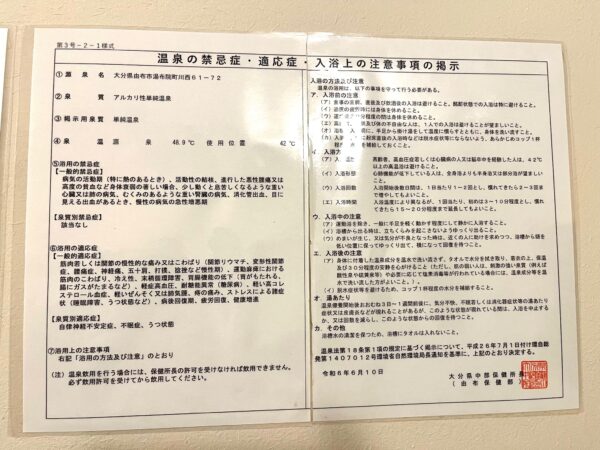 第3号-2-1様式
温泉の禁忌症・適応症・入浴上の注意事項の掲示
①源泉名 大分県由布市湯布院町川西61-72
②泉質 アルカリ性単純温泉
③掲示用泉質 単純温泉
④泉温 源泉 48.9℃ 使用位置 42℃
⑤浴用の禁忌症
【一般的禁忌症】
病気の活動期(特に熱のあるとき)、活動性の結核、進行した悪性腫瘍又は
高度の貧血など身体衰弱の著しい場合、少し動くと息苦しくなるような重い
心臓又は肺の病気、むくみのあるような重い腎臓の病気、消化管出血、目に
見える出血があるとき、慢性の病気の急性増悪期
【泉質別禁忌症】
該当なし
⑥浴用の適応症
【一般的適応症】
筋肉若しくは関節の慢性的な痛み又はこわばり(関節リウマチ、変形性関節
症、腰痛症、神経痛、五十肩、打撲、捻挫など慢性期)、運動麻痺における
筋肉のこわばり、冷え性、末梢循環障害、胃腸機能の低下(胃がもたれる、
腸にガスがたまるなど)、軽症高血圧、耐糖能異常(糖尿病)、軽い高コレ
ステロール血症、軽いぜんそく又は肺気腫、痔の痛み、ストレスによる諸症
状(睡眠障害、うつ状態など)、病後回復期、疲労回復、健康増進
【泉質別適応症】
自律神経不安定症、不眠症、うつ状態
⑦浴用上の注意事項
右記「浴用の方法及び注意」のとおり
(注)温泉飲用を行う場合には、保健所長の許可を受けなければ飲用できません。
必ず飲用許可を受けてから飲用してください。
入浴の方法及び注意
温泉の浴用は、以下の事項を守って行う必要がある。
ア.入浴前の注意
(ア)食事の直前、直後及び飲酒後の入浴は避けること。酩酊状態での入浴は特に避けること。
(イ)過度の疲労時には身体を休めること。
(ウ)運動後30分程度の間は身体を休めること。
(オ)
手足から掛け湯をして温度に慣らすとともに、身体を洗い流すこと。
イ.入浴方法
(ア)入浴温度 高齢者、高血圧症若しくは心臓病の人又は脳卒中を経験した人は、42℃以
上の高温浴は避けること。
(イ)入浴形態 心肺機能が低下している人は、全身浴よりも半身浴又は部分浴が望まし
いこと。
(ウ)入浴回数 入浴開始後数日間は、1日当たり1~2回とし、慣れてきたら2~3回ま
で増やしてもよいこと。
(エ)入浴時間 入浴温度により異なるが、1回当たり、初めは3~10分程度とし、慣れ
てきたら15~20分程度まで延長してもよいこと。
ウ.入浴中の注意
(ア)運動浴を除き、一般に手足を軽く動かす程度にして静かに入浴すること。
(イ)浴槽から出る時は、立ちくらみを起こさないようゆっくり出ること。
(ウ)めまいが生じ、又は気分が不良となった時は、近くの人に助けを求めつつ、浴槽から頭を
低い位置に保ってゆっくり出て、横になって回復を待つこと。
エ.入浴後の注意
(ア)身体に付着した温泉成分を温水で洗い流さず、タオルで水分を拭き取り、着衣の上、保温
及び30分程度の安静を心がけること(ただし、肌の弱い人は、刺激の強い泉質(例えば
酸性泉や硫黄泉等)や必要に応じて塩素消毒等が行われている場合には、温泉成分等を温
水で洗い流した方がよいこと。)。
(イ)脱水症状等を避けるため、コップ1杯程度の水分を補給すること。
オ.湯あたり
温泉療養開始後おおむね3日~1週間前後に、気分不快、不眠若しくは消化器症状等の湯あたり
症状又は皮膚炎などが現れることがあるが、このような状態が現れている間は、入浴を中止する
か、又は回数を減らし、このような状態からの回復を待つこと。
カ.その他
浴槽水の清潔を保つため、浴槽にタオルは入れないこと。
温泉法第18条第1項の規定に基づく掲示について、平成26年7月1日付け環自総
発第1407012号環境省自然環境局長通知を基準に、上記のとおり決定する。
令和6年6月10日
大分県中部保健所長
(由布保健部)